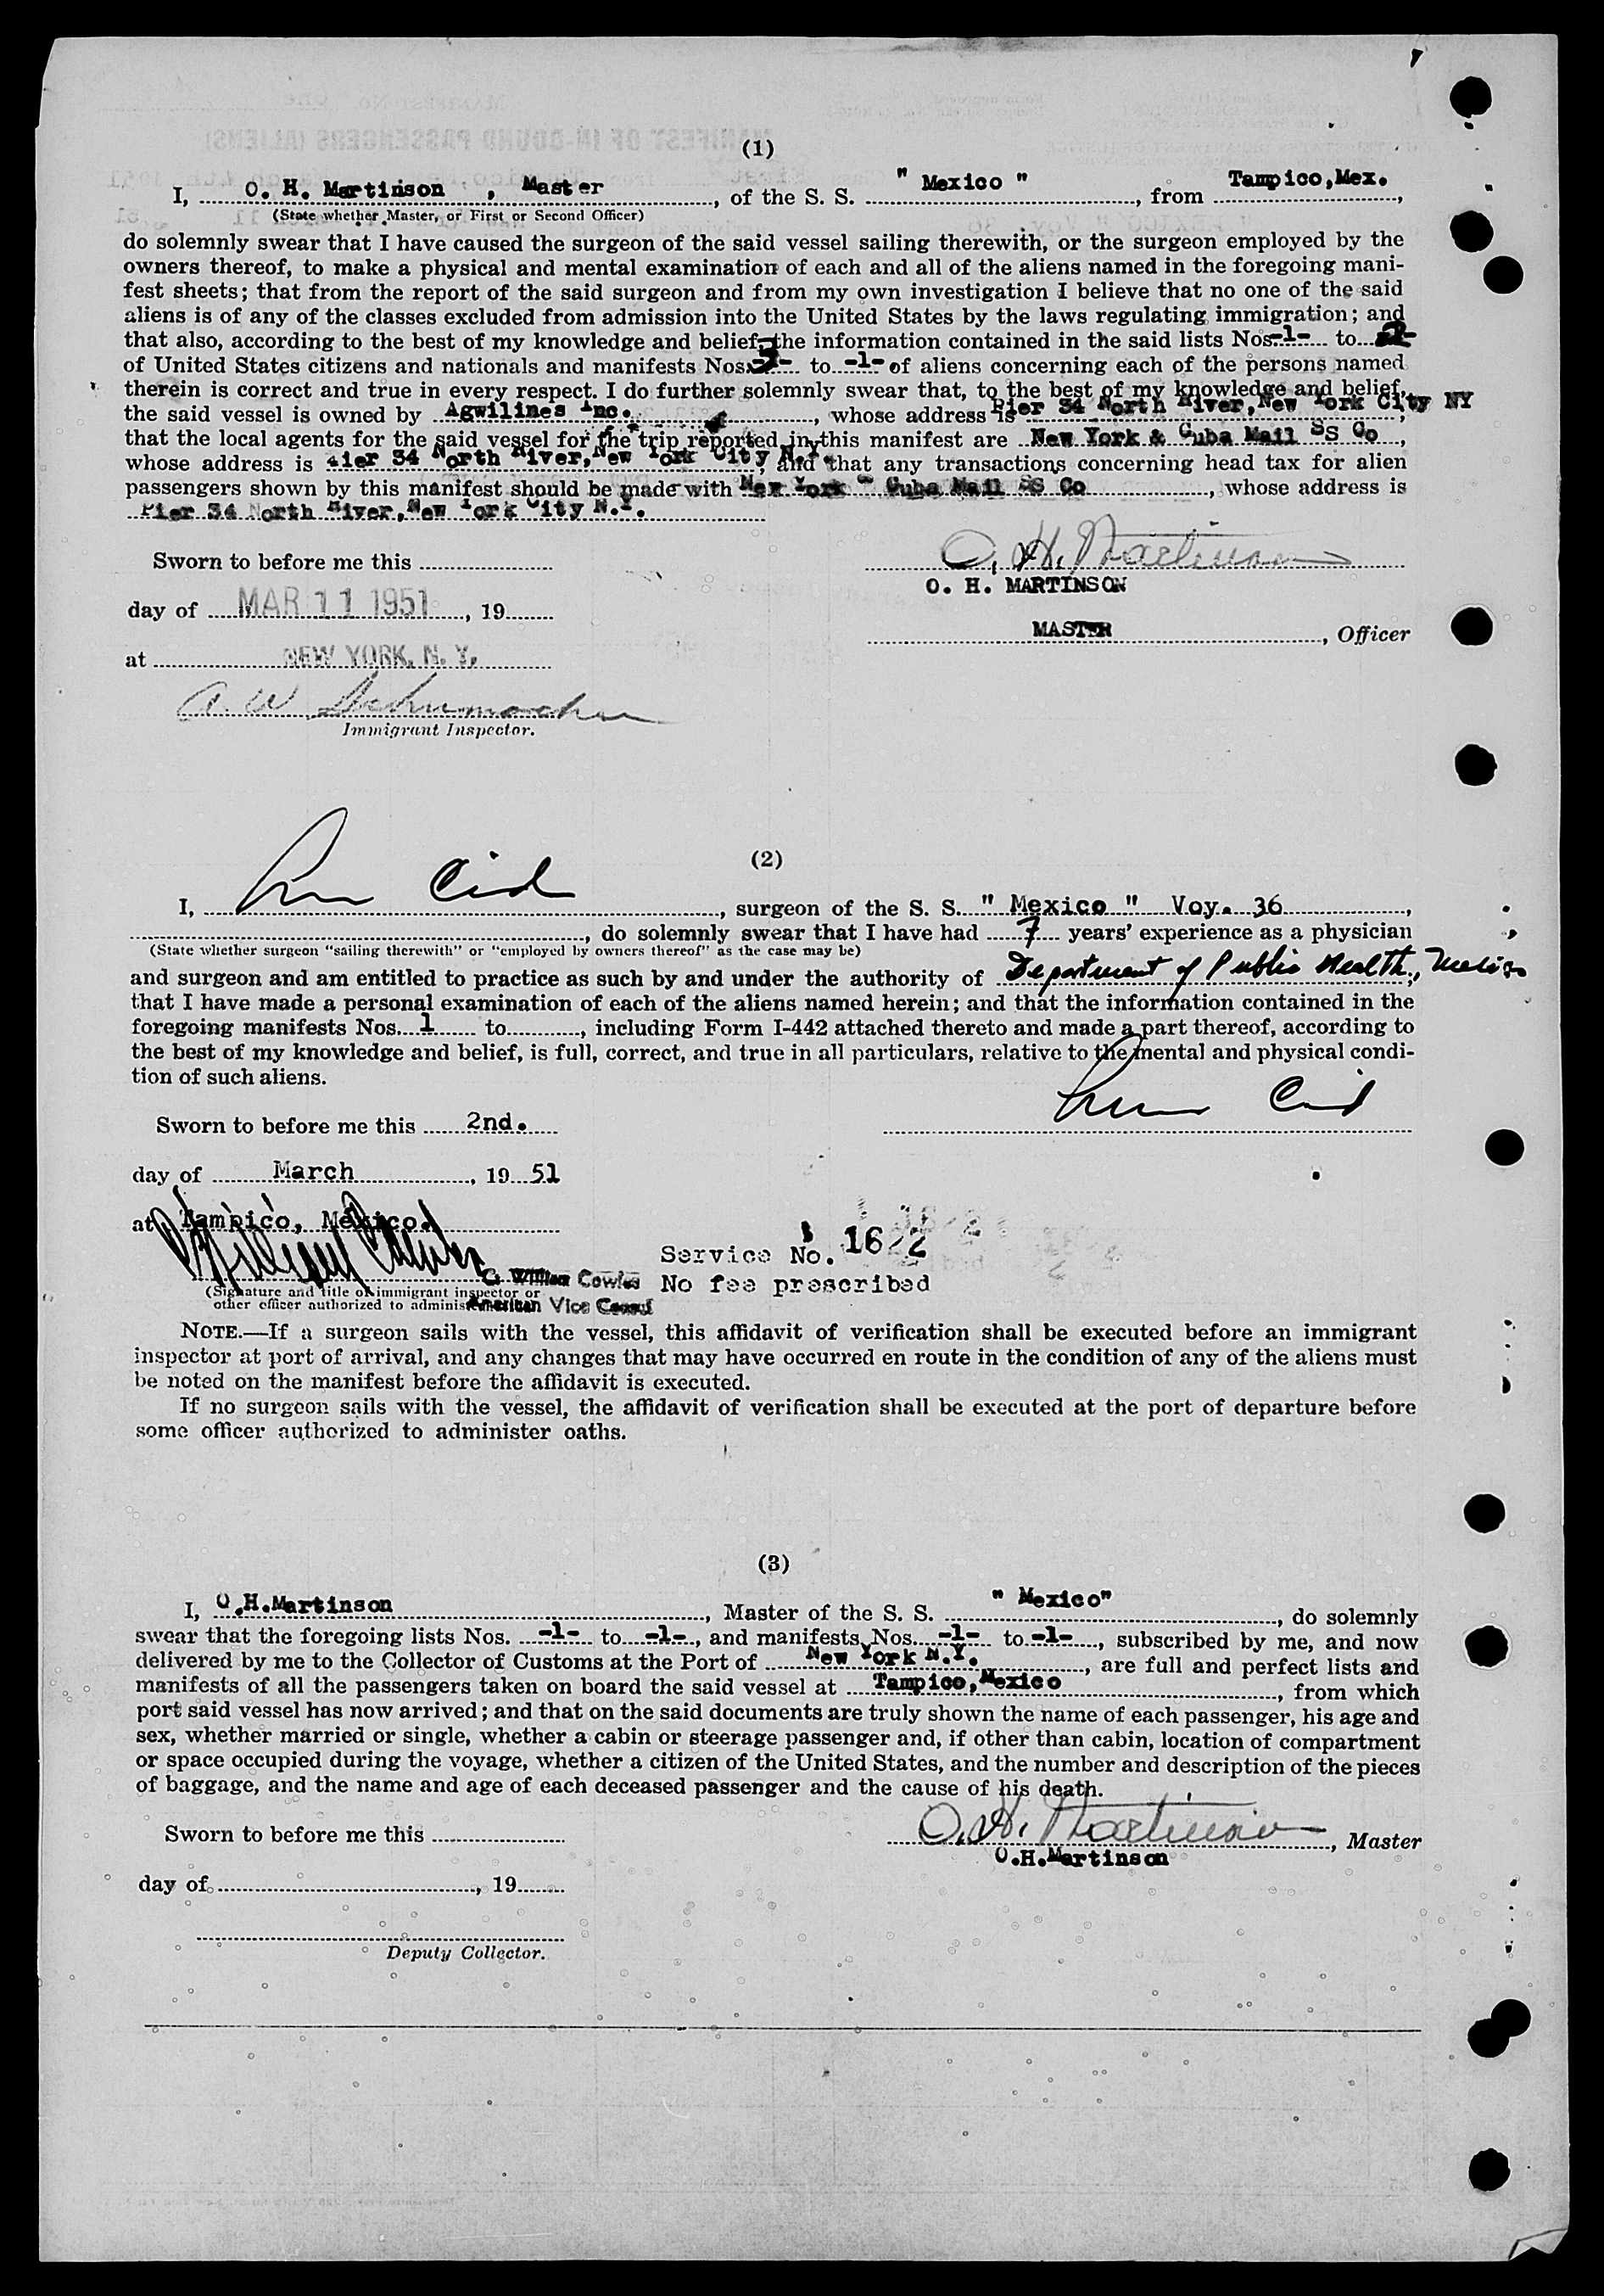 (1)
I, O. H. Martinson , Master, of the S. S. " Mexico ", from Tampico, Mex.,
(State whether Master, or First or Second Officer)
do solemnly swear that I have caused the surgeon of the said vessel sailing therewith, or the surgeon employed by the
owners thereof, to make a physical and mental examination of each and all of the aliens named in the foregoing mani-
fest sheets; that from the report of the said surgeon and from my own investigation I believe that no one of the said
aliens is of any of the classes excluded from admission into the United States by the laws regulating immigration; and
that also, according to the best of my knowledge and belief, the information contained in the said lists Nos. -1- to
of United States citizens and nationals and manifests Nos. to -1- of aliens concerning each of the persons named
therein is correct and true in every respect. I do further solemnly swear that, to the best of my knowledge and belief,
the said vessel is owned by Agwilines Inc., whose address is Pier 34 North River, New York City NY
that the local agents for the said vessel for the trip reported in this manifest are New York & Cuba Mail SS Co,
whose address is Pier 34 North River, New York City N.Y., and that any transactions concerning head tax for alien
passengers shown by this manifest should be made with New York Cuba Mail SS Co, whose address is
Pier 34 North River, New York City N.Y.
Sworn to before me this
O. H. Martinson
O. H. MARTINSON
day of MAR 11 1951, 19
MASTER, Officer
at NEW YORK, N. Y.
A. W. Schumacher
Immigrant Inspector.
(2)
I, Cid, surgeon of the S. S. " Mexico " Voy. 36,
, do solemnly swear that I have had 7 years' experience as a physician
(State whether surgeon "sailing therewith" or "employed by owners thereof" as the case may be)
and surgeon and am entitled to practice as such by and under the authority of Department of Public Health, Mexico
that I have made a personal examination of each of the aliens named herein; and that the information contained in the
foregoing manifests Nos. 1 to, including Form I-442 attached thereto and made a part thereof, according to
the best of my knowledge and belief, is full, correct, and true in all particulars, relative to the mental and physical condi-
tion of such aliens.
Cid
Sworn to before me this 2nd.
day of March, 19 51
at Tampico, Mexico.
Service No. 1622
William Cowles No fee prescribed
(Signature and title of immigrant inspector or
other officer authorized to administer American Vice Consul
NOTE.—If a surgeon sails with the vessel, this affidavit of verification shall be executed before an immigrant
inspector at port of arrival, and any changes that may have occurred en route in the condition of any of the aliens must
be noted on the manifest before the affidavit is executed.
If no surgeon sails with the vessel, the affidavit of verification shall be executed at the port of departure before
some officer authorized to administer oaths.
(3)
I, O.H.Martinson, Master of the S. S. " Mexico", do solemnly
swear that the foregoing lists Nos. -1- to -1-, and manifests Nos. -1- to -1-, subscribed by me, and now
delivered by me to the Collector of Customs at the Port of New York N.Y., are full and perfect lists and
manifests of all the passengers taken on board the said vessel at Tampico, Mexico, from which
port said vessel has now arrived; and that on the said documents are truly shown the name of each passenger, his age and
sex, whether married or single, whether a cabin or steerage passenger and, if other than cabin, location of compartment
or space occupied during the voyage, whether a citizen of the United States, and the number and description of the pieces
of baggage, and the name and age of each deceased passenger and the cause of his death.
Sworn to before me this
O. H. Martinson, Master
O.H.Martinson
day of, 19
Deputy Collector.